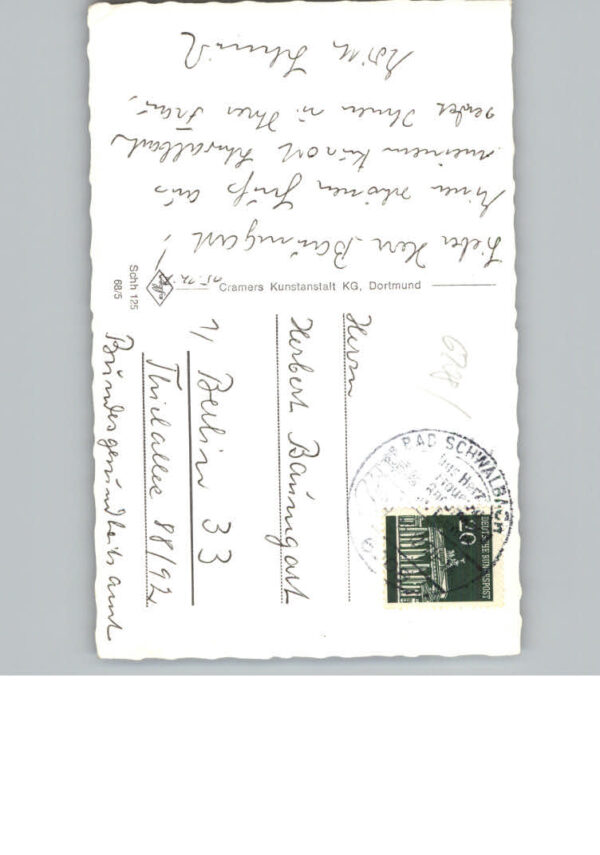 Lieber Herr Baumgart!
Einen schönen Gruß aus
meinem Kurort Schwalbach
sendet Ihnen u. Ihrer Frau,
Cramers Kunstanstalt KG, Dortmund
Schh 125
68/5
Herrn
Herbert Baumgart
1/ Berlin 33
Thielallee 88/92
Bundesgesundheitsamt
6208/
BAD SCHWALBACH
20
DEUTSCHE BUNDESPOST